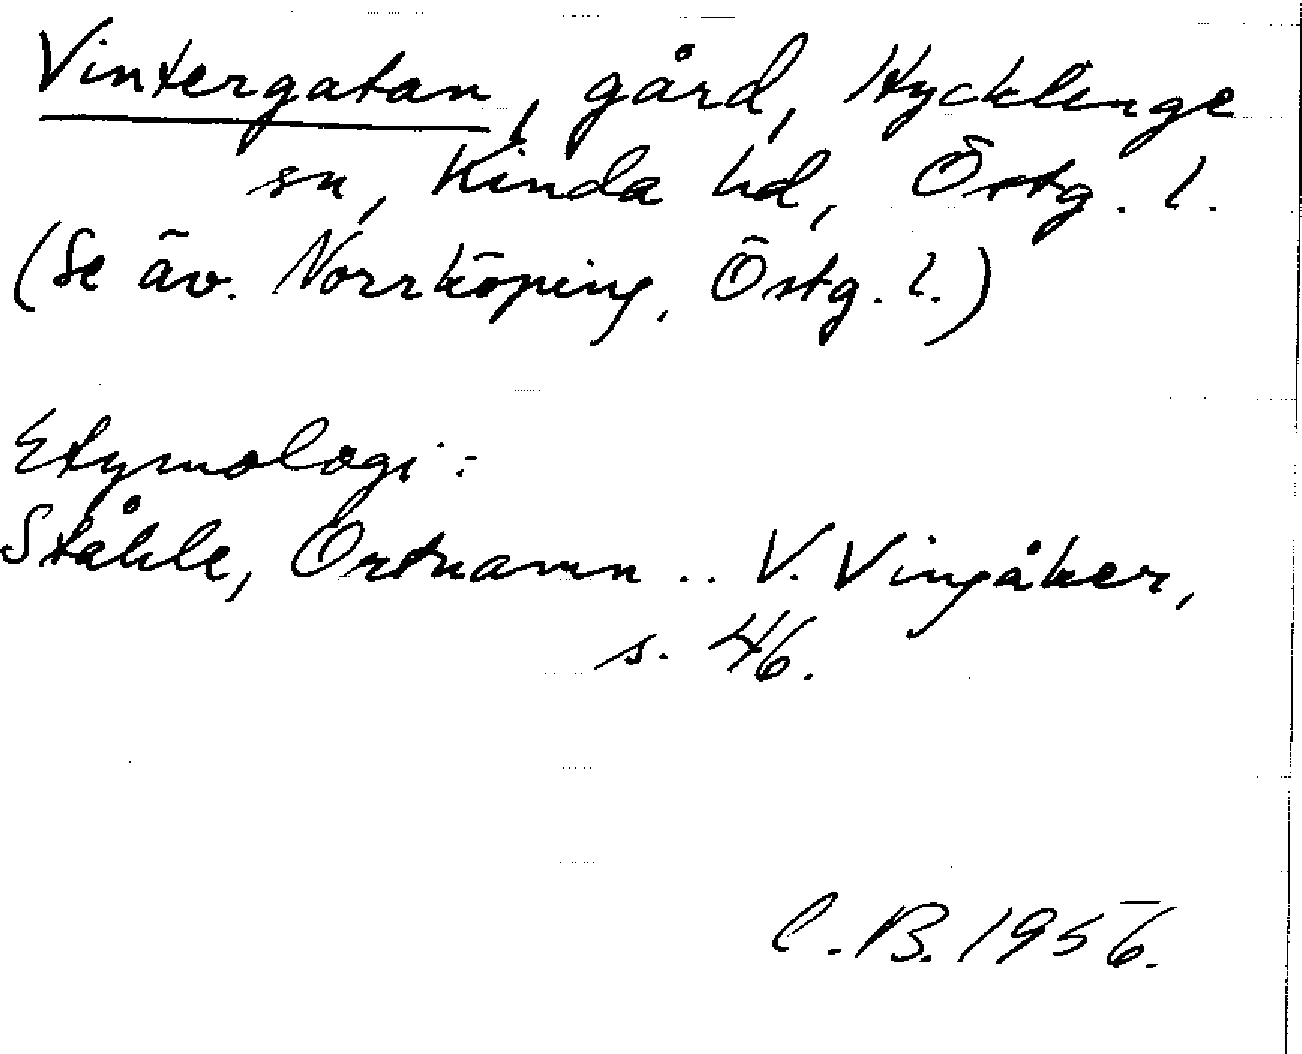 Vintergatan, gård, Hycklinge
sn, Kinda hd, Östg. l.
(Se äv. Norrköping, Östg. l.)
Etymologi:
Ståhle, Ortnamn .. V. Vingåker,
s. 46.
C.B. 1956.